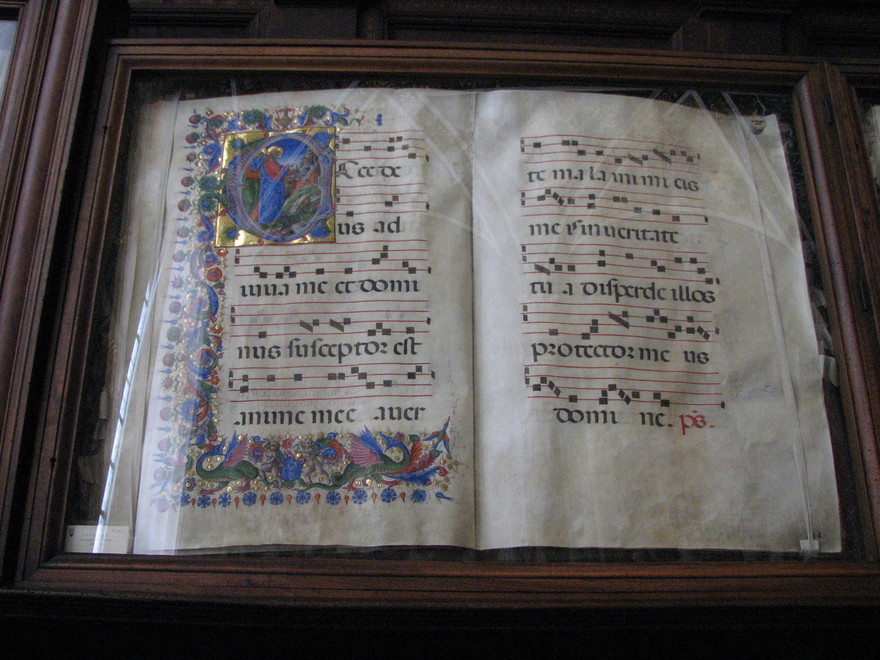 ECce de
us ad
iuua me et domi
nus susceptor est
anime mee auer
te mala inimicis
me is in ueritate
tu a disperde illos
protector me us
domi ne. ps.